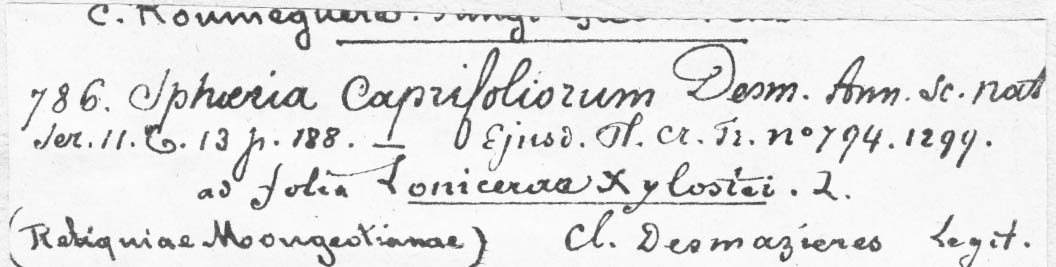 C. Roumeguère. Fungi
786. Sphæria Caprifoliorum Desm. Ann. Sc. nat
Ser. 11. T. 13 p. 188. — Ejusd. Pl. Cr. Fr. nº 794. 1299.
ad folia Lonicerae Xylostei. L.
(Reliquiae Mougeotianae) Cl. Desmazieres Legit.